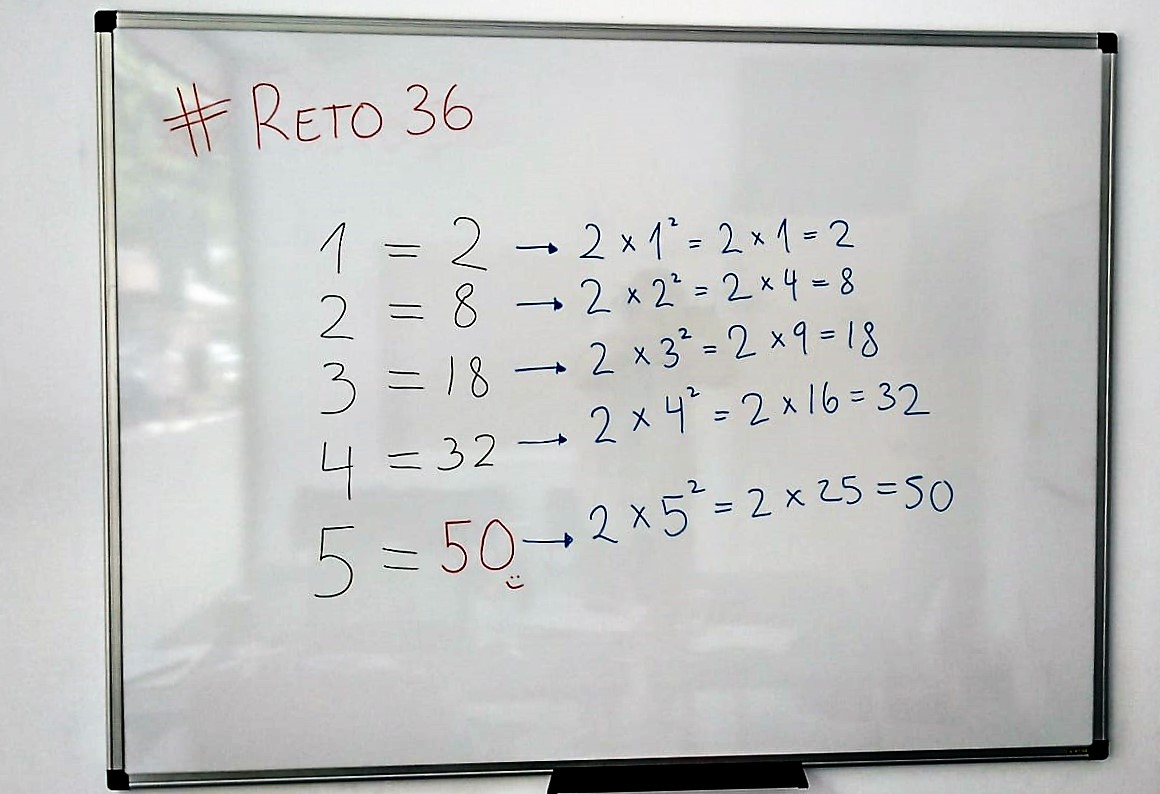 # RETO 36
1 = 2 → 2 × 1² = 2 × 1 = 2
2 = 8 → 2 × 2² = 2 × 4 = 8
3 = 18 → 2 × 3² = 2 × 9 = 18
4 = 32 → 2 × 4² = 2 × 16 = 32
5 = 50 → 2 × 5² = 2 × 25 = 50